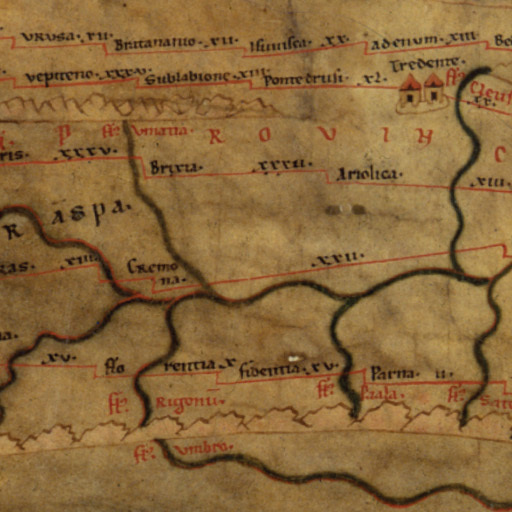 vrusa. vii. Bratananio .xii. Isunisca. xx. adenum. xiii.
vepiteno. xxxv. Sublabione .xiii. Pontedrusi. xl. Tredente. ff.
ff. Vmatia
P R O V I N C
ris. xxxv. Brixia. xxxii. Ariolica. xiii.
R A S P A.
ras. xiii. Cremo
na. .xxii.
.xv. flo rentia. x. fidentia. xv. Parna. ii.
ff. Rigonū ff. Paala. ff.
ff. Vmbro.